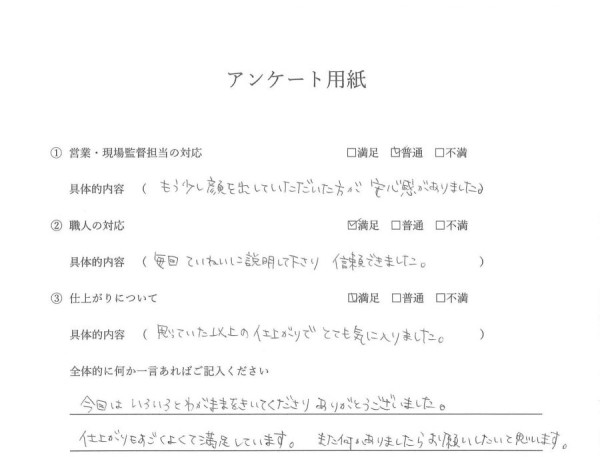 アンケート用紙
① 営業・現場監督担当の対応 □満足 ☑普通 □不満
具体的内容 （ もう少し顔を出していただいた方が 安心感がありました）
② 職人の対応 ☑満足 □普通 □不満
具体的内容 （ 毎回 ていねいに説明して下さり 信頼できました。 ）
③ 仕上がりについて ☑満足 □普通 □不満
具体的内容 （ 思っていた以上の仕上がりで とても気に入りました。 ）
全体的に何か一言あればご記入ください
今回は いろいろとわがままをきいてくださり ありがとうございました。
仕上がりもすごくよくて満足しています。 また何かありましたらお願いしたいて思います。